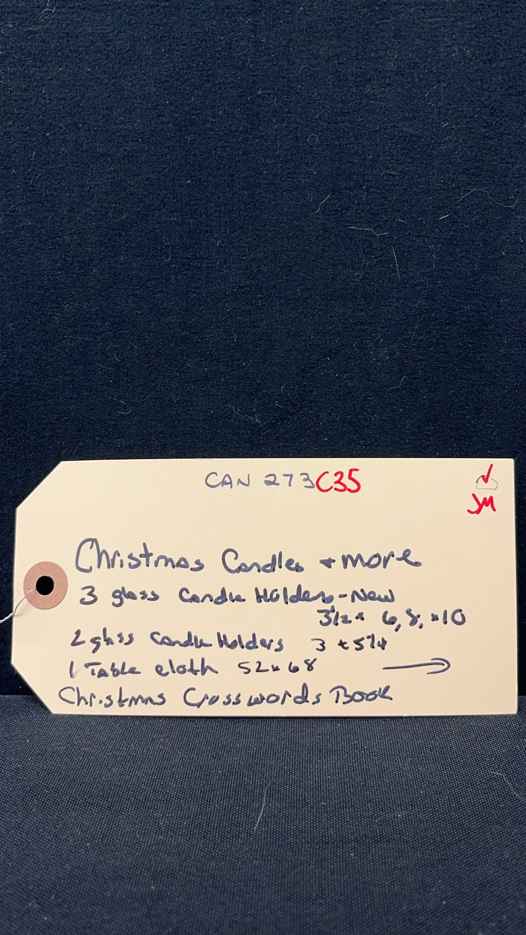 CAN 273 C35
JM
Christmas Candles + more
3 glass Candle Holders - New
3 1/2 x 6, 8, x 10
2 glass Candle Holders 3 + 5 1/4
1 Table cloth 52 x 68 →
Christmas Crosswords Book